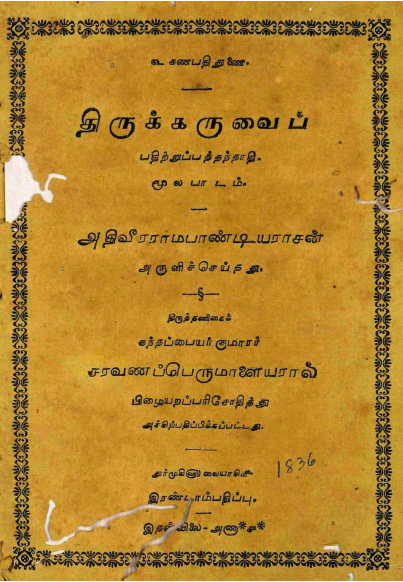 உ கணபதிதுணை.
திருக்கருவைப்
பதிற்றுப்பத்தந்தாதி.
மூலபாடம்.
அதிவீரராமபாண்டியராசன்
அருளிச்செய்தது.
திருத்தணிகைக்
கந்தப்பையர் குமாரர்
சரவணப்பெருமாளையரால்
பிழையறப்பரிசோதித்து
அச்சிற்பதிப்பிக்கப்பட்டது.
1836
இரண்டாம்பதிப்பு.
இதன்விலை - அணா